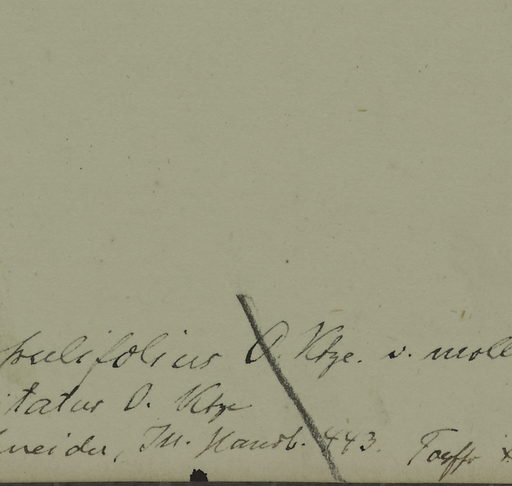 pulifolius O. Ktze. v. moll
itatus O. Ktze
neider, Ill. Handb. 443.